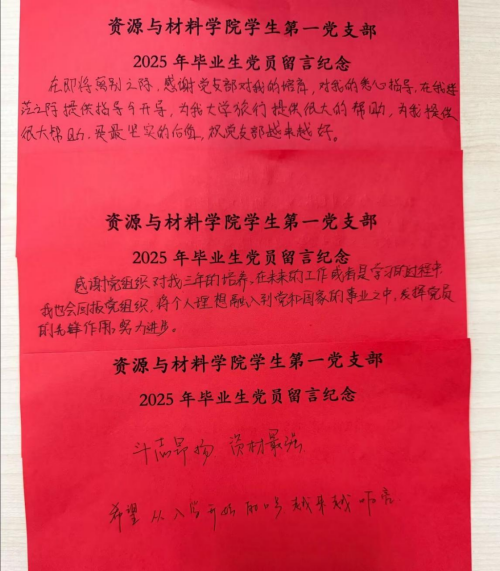 资源与材料学院学生第一党支部
2025年毕业生党员留言纪念
在即将离别之际，感谢党支部对我的培库，对我的悉心指导，在我迷
茫之际提供指导和开导，为我大学旅行提供很大的帮助，为我提供
很大帮助。是最坚实的后盾，祝党支部越来越好。
资源与材料学院学生第一党支部
2025年毕业生党员留言纪念
感谢党组织对我三年的培养，在未来的工作或者是学习的过程中
我也会回报党组织，将个人理想融入到党和国家的事业之中，发挥党员
的先锋作用，努力进步。
资源与材料学院学生第一党支部
2025年毕业生党员留言纪念
斗志昂扬 资材最强
希望从入学开始的口号越来越响亮